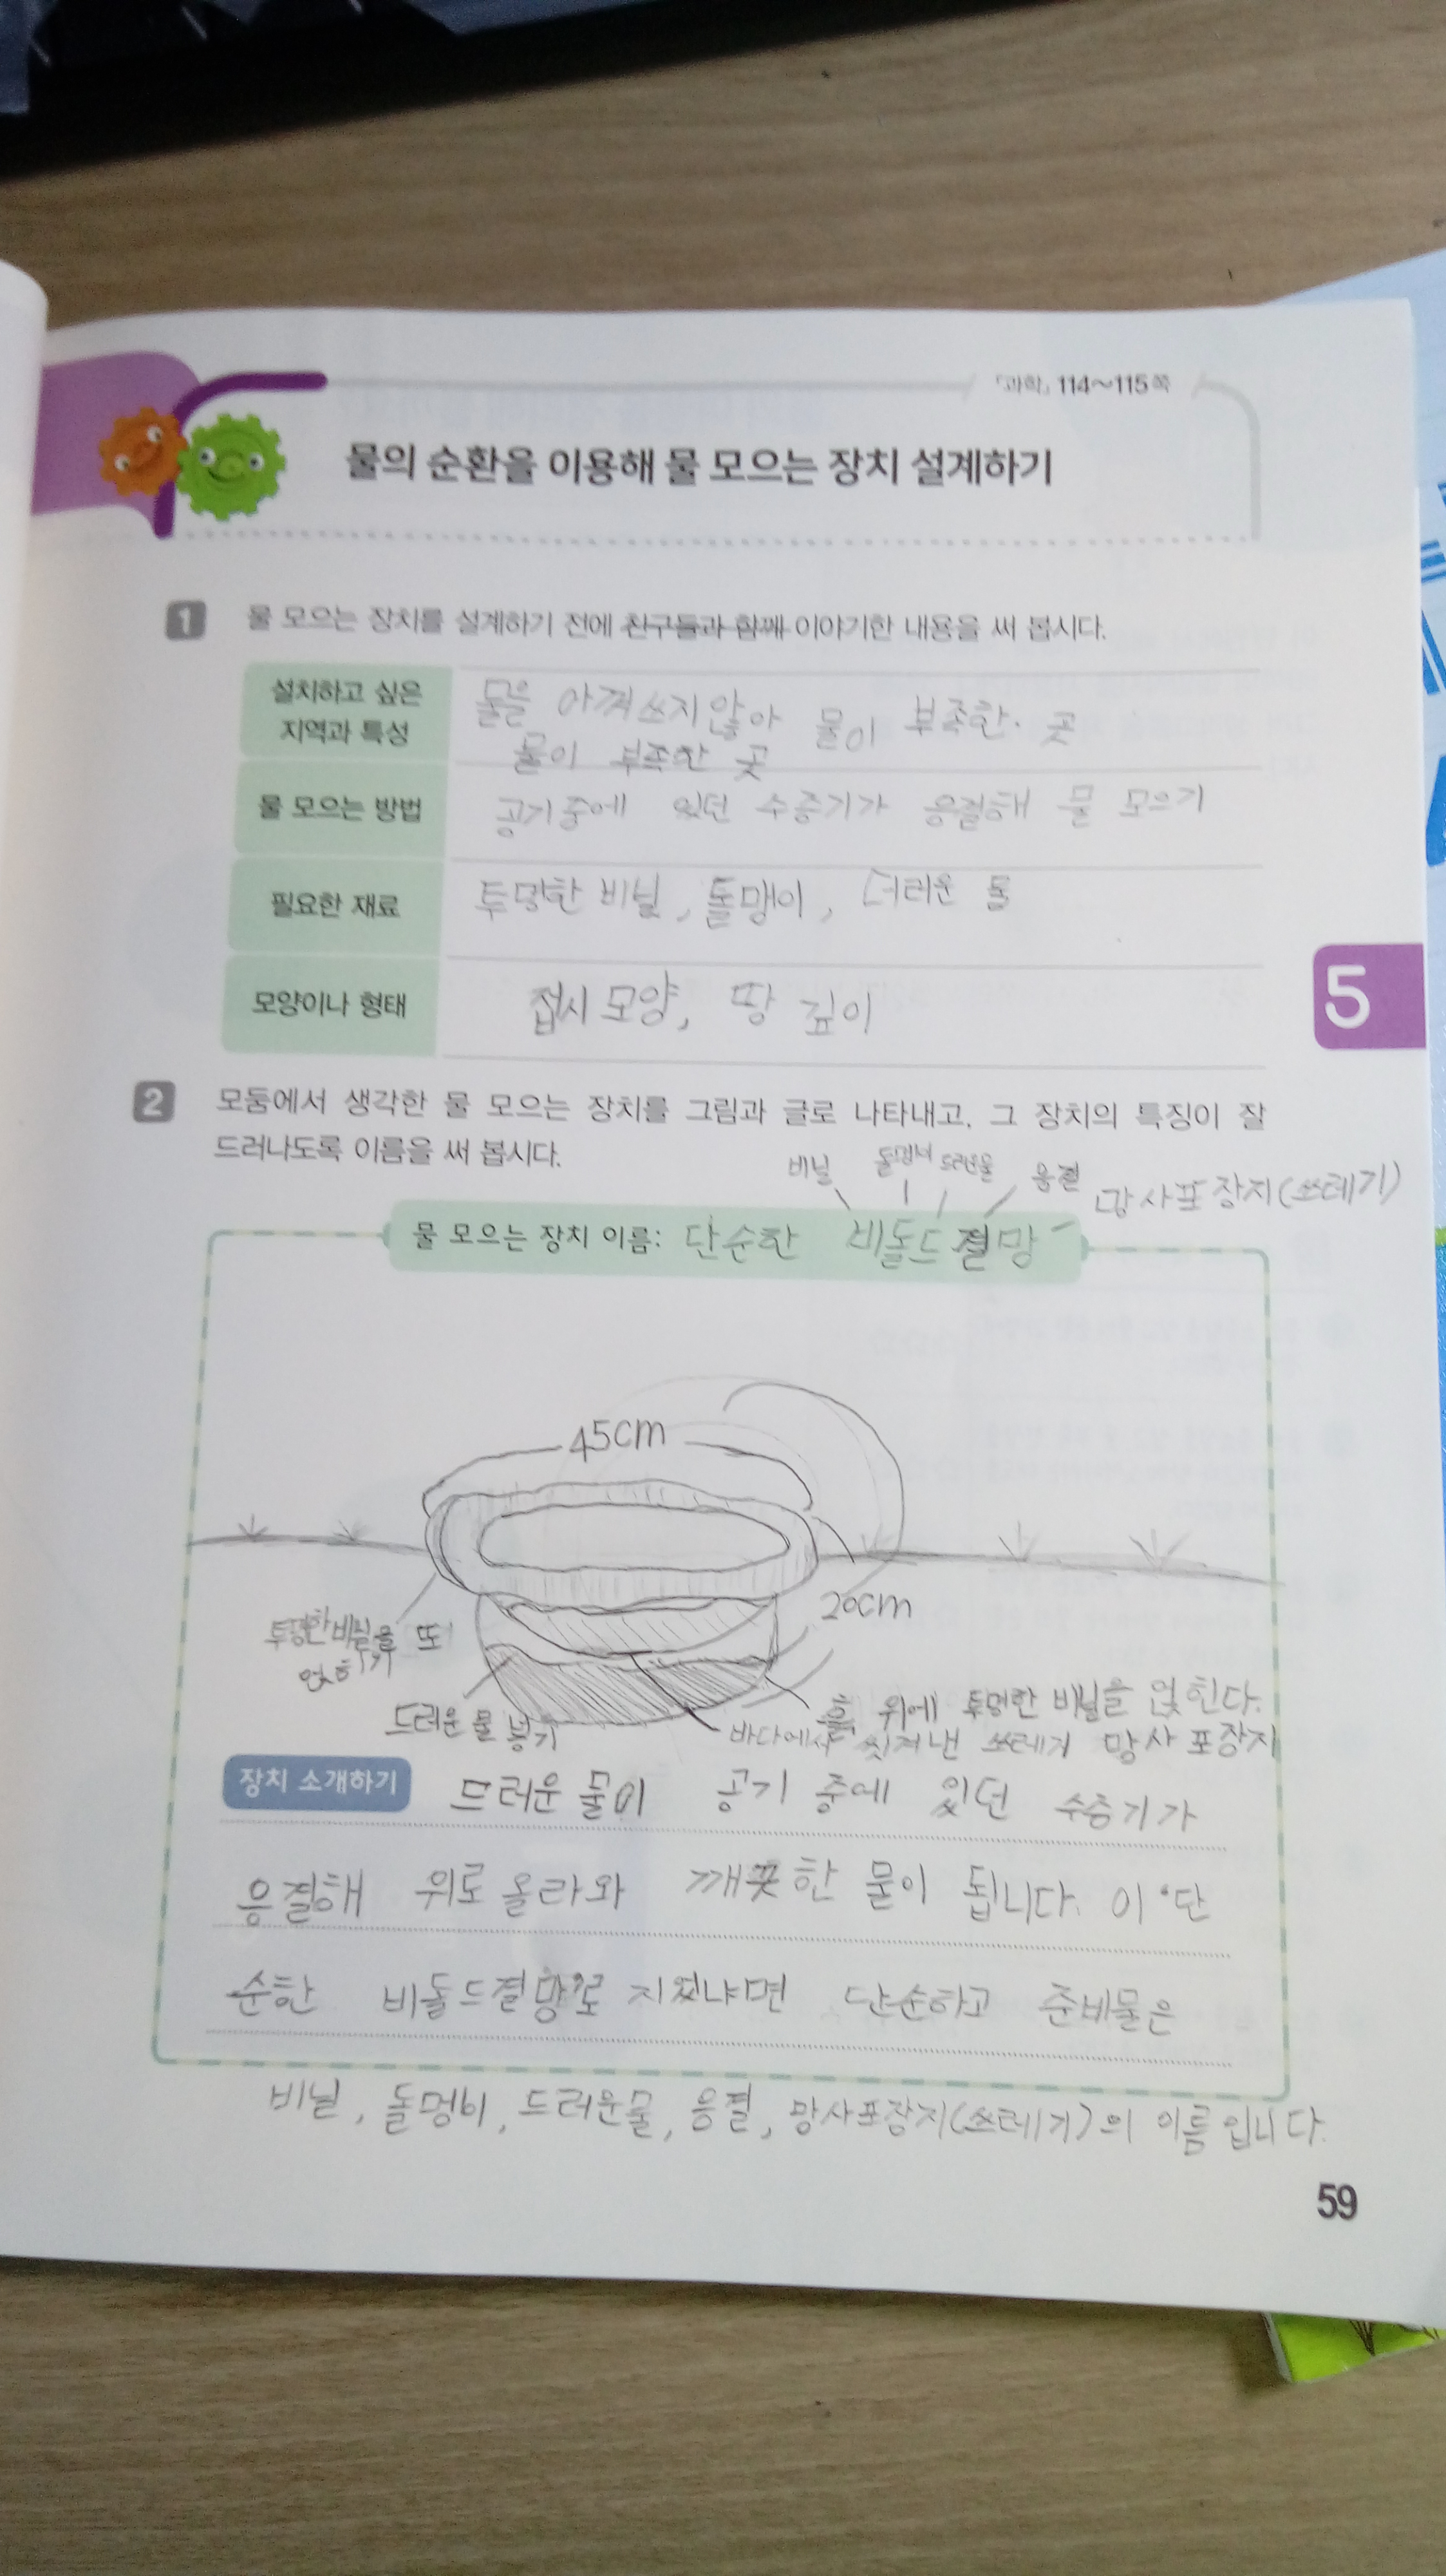 「과학」 114~115쪽
물의 순환을 이용해 물 모으는 장치 설계하기
1 물 모으는 장치를 설계하기 전에 친구들과 함께 이야기한 내용을 써 봅시다.
설치하고 싶은 지역과 특성
물을 아껴쓰지않아 물이 부족한 곳
물이 부족한 곳
물 모으는 방법
공기중에 있던 수증기가 응결해 물 모으기
필요한 재료
투명한 비닐, 돌맹이, 더러운 물
모양이나 형태
접시 모양, 땅 깊이
5
2 모둠에서 생각한 물 모으는 장치를 그림과 글로 나타내고, 그 장치의 특징이 잘
드러나도록 이름을 써 봅시다.
비닐 돌멩이 드러운물 응결 망사포장지(쓰테기)
물 모으는 장치 이름: 단순한 비돌드결망
45cm
20cm
투명한비닐을 또
얹히기
드러운 물 넣기
흙 위에 투명한 비닐을 얹힌다.
바다에서 씻겨낸 쓰테기 망사 포장지
장치 소개하기 드러운 물이 공기 중에 있던 수증기가
응결해 위로 올라와 깨끗한 물이 됩니다. 이 '단
순한 비돌드결망'로 지었냐면 단순하고 준비물은
비닐, 돌멩이, 드러운물, 응결, 망사포장지(쓰테기)의 이름입니다.
59